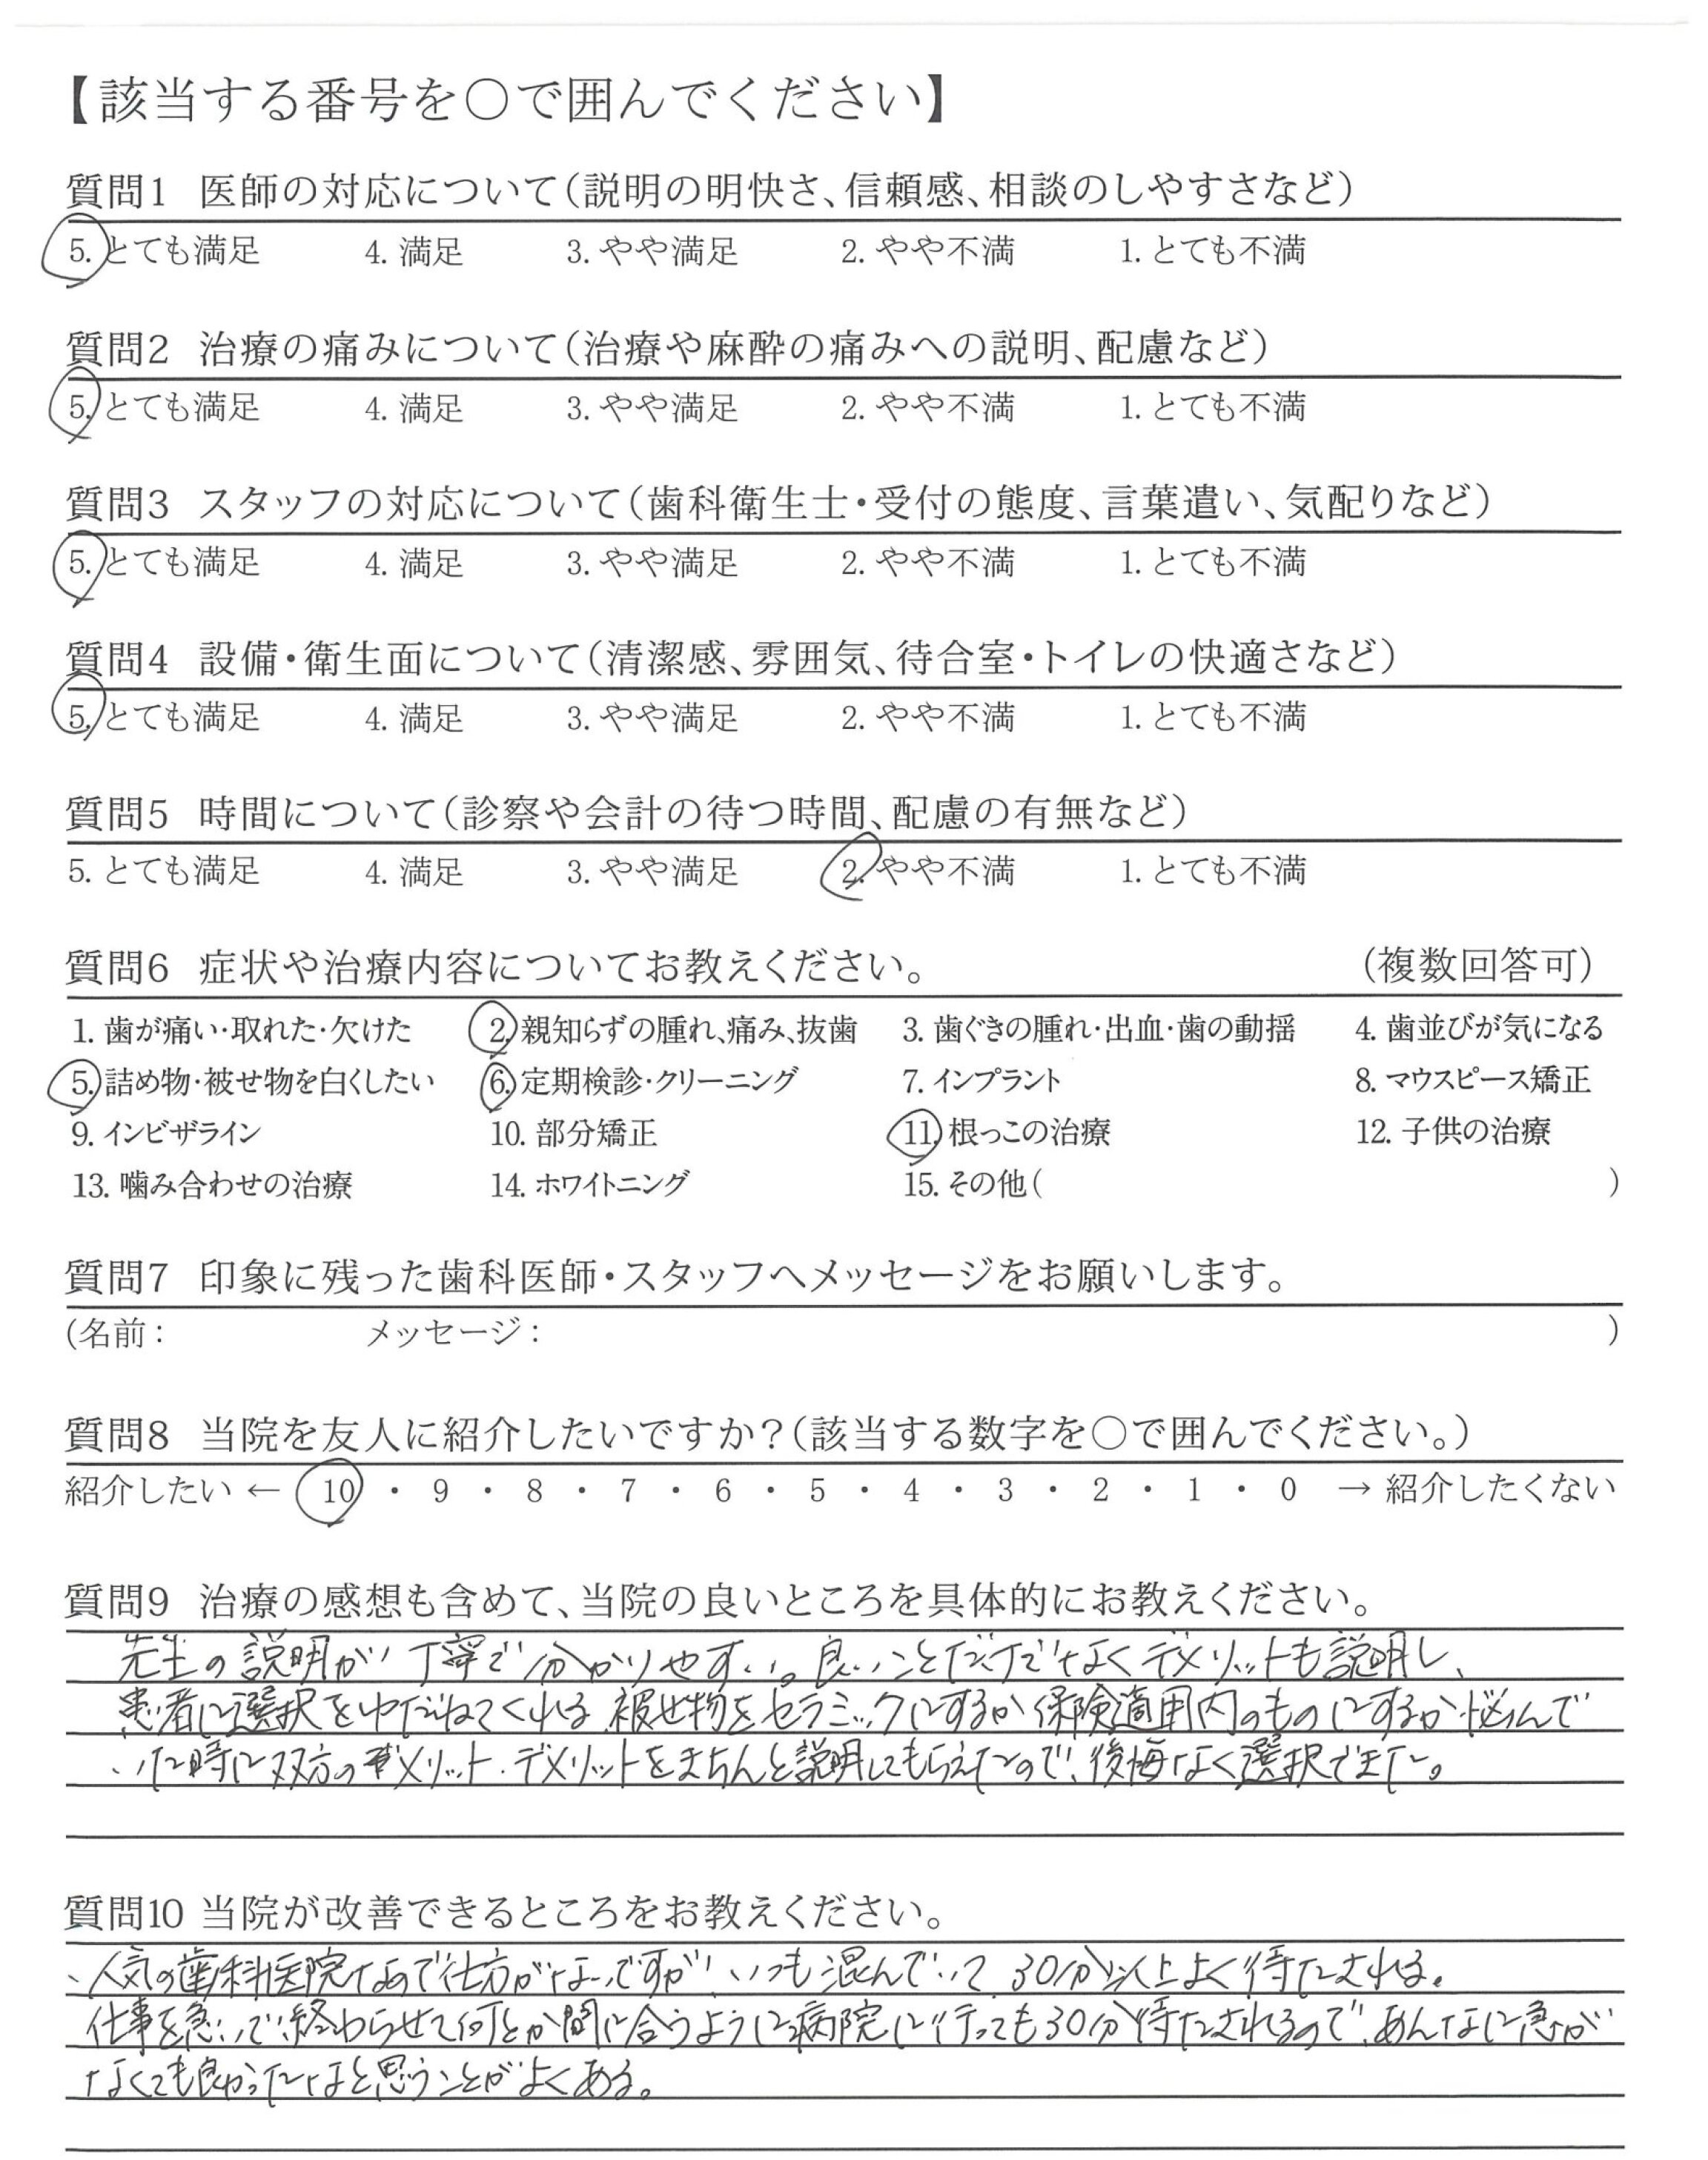 【該当する番号を〇で囲んでください】
質問1 医師の対応について(説明の明快さ、信頼感、相談のしやすさなど)
5. とても満足 4. 満足 3. やや満足 2. やや不満 1. とても不満
質問2 治療の痛みについて(治療や麻酔の痛みへの説明、配慮など)
5. とても満足 4. 満足 3. やや満足 2. やや不満 1. とても不満
質問3 スタッフの対応について(歯科衛生士・受付の態度、言葉遣い、気配りなど)
5. とても満足 4. 満足 3. やや満足 2. やや不満 1. とても不満
質問4 設備・衛生面について(清潔感、雰囲気、待合室・トイレの快適さなど)
5. とても満足 4. 満足 3. やや満足 2. やや不満 1. とても不満
質問5 時間について(診察や会計の待つ時間、配慮の有無など)
5. とても満足 4. 満足 3. やや満足 2. やや不満 1. とても不満
質問6 症状や治療内容についてお教えください。 (複数回答可)
1. 歯が痛い・取れた・欠けた 2. 親知らずの腫れ、痛み、抜歯 3. 歯ぐきの腫れ・出血・歯の動揺 4. 歯並びが気になる
5. 詰め物・被せ物を白くしたい 6. 定期検診・クリーニング 7. インプラント 8. マウスピース矯正
9. インビザライン 10. 部分矯正 11. 根っこの治療 12. 子供の治療
13. 噛み合わせの治療 14. ホワイトニング 15. その他( )
質問7 印象に残った歯科医師・スタッフへメッセージをお願いします。
(名前: メッセージ: )
質問8 当院を友人に紹介したいですか?(該当する数字を〇で囲んでください。)
紹介したい ← 10 ・ 9 ・ 8 ・ 7 ・ 6 ・ 5 ・ 4 ・ 3 ・ 2 ・ 1 ・ 0 → 紹介したくない
質問9 治療の感想も含めて、当院の良いところを具体的にお教えください。
先生の説明が丁寧で分かりやすい。良いことだけでなくデメリットも説明し、
患者に選択をゆだねてくれる。被せ物をセラミックにするか保険適用内のものにするか悩んで
いた時に双方のメリット・デメリットをきちんと説明してもらえたので、後悔なく選択できた。
質問10 当院が改善できるところをお教えください。
、人気の歯科医院なので仕方がないですが、いつも混んでいて、30分以上よく待たされる。
仕事を急いで終わらせて何とか間に合うように病院に行っても30分待たされるので、あんなに急が
なくても良かったなと思うことがよくある。